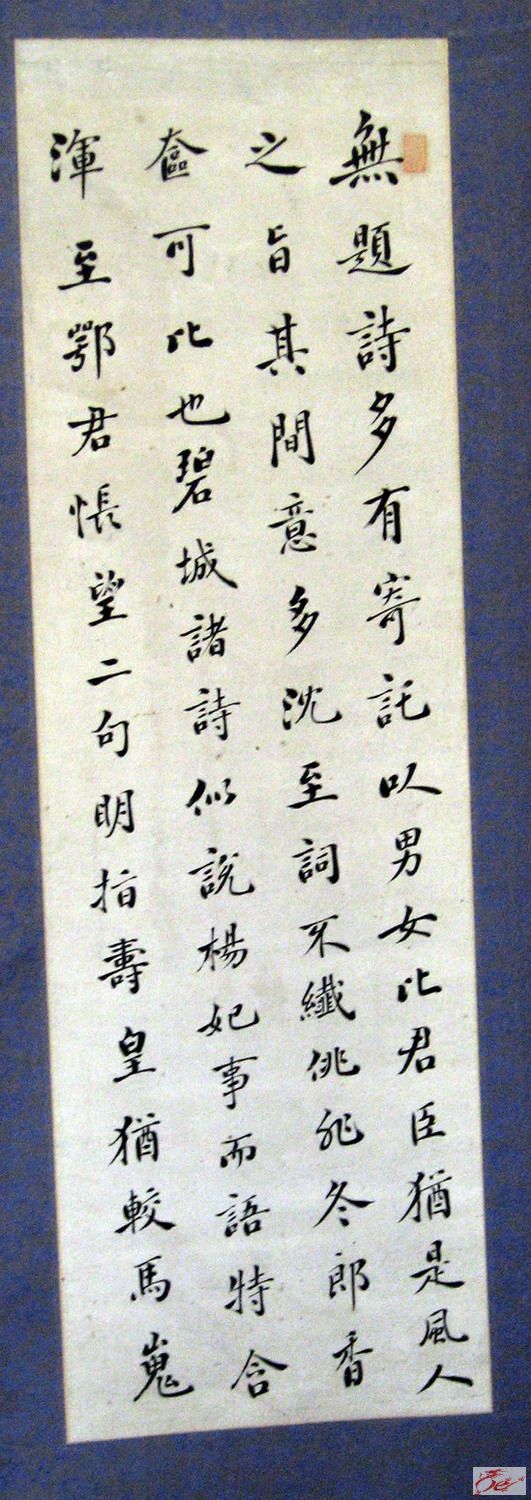 無題詩多有寄託以男女比君臣猶是風人
之旨其間意多沈至詞不纖佻非冬郎香
奩可比也碧城諸詩似說楊妃事而語特含
渾至鄂君悵望二句明指壽皇猶較馬嵬